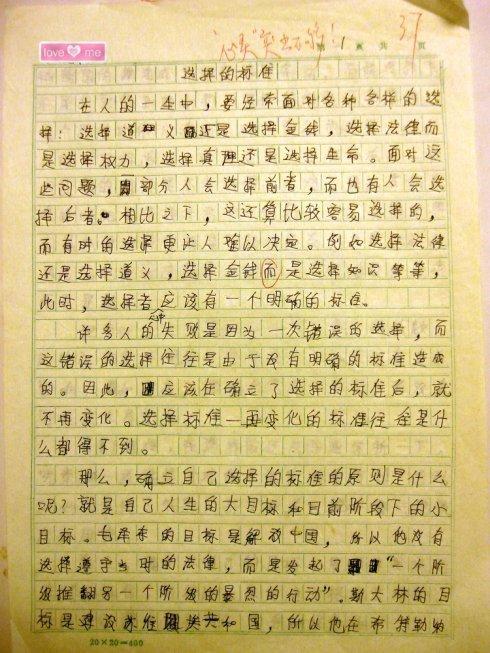 love me
"心灵"突出不够!
37
第1页共页
选择的标准
在人的一生中，要经常面对各种各样的选
择：选择道义还是选择金钱，选择法律而
是选择权力，选择真理还是选择生命。面对这
些问题，一部分人会选择前者，而也有人会选
择后者。相比之下，这还算比较容易选择的，
而有时的选择更让人难以决定。例如选择法律
还是选择道义，选择金钱而是选择知识等等，
此时，选择者应该有一个明确的标准。
许多人的失败是因为一次错误的选择，而
这错误的选择往往是由于没有明确的标准造成
的。因此，应该在确立了选择的标准后，就
不再变化。选择标准一再变化的标准往往是什
么都得不到。
那么，确立自己选择的标准的原则是什么
呢？就是自己人生的大目标和目前阶段下的小
目标。毛泽东的目标是解放中国，所以他没有
选择遵守当时的法律，而是发起了"一个阶
级推翻另一个阶级的暴烈的行动"。斯大林的目
标是建设苏维埃共和国，所以他在希特勒的
20×20=400